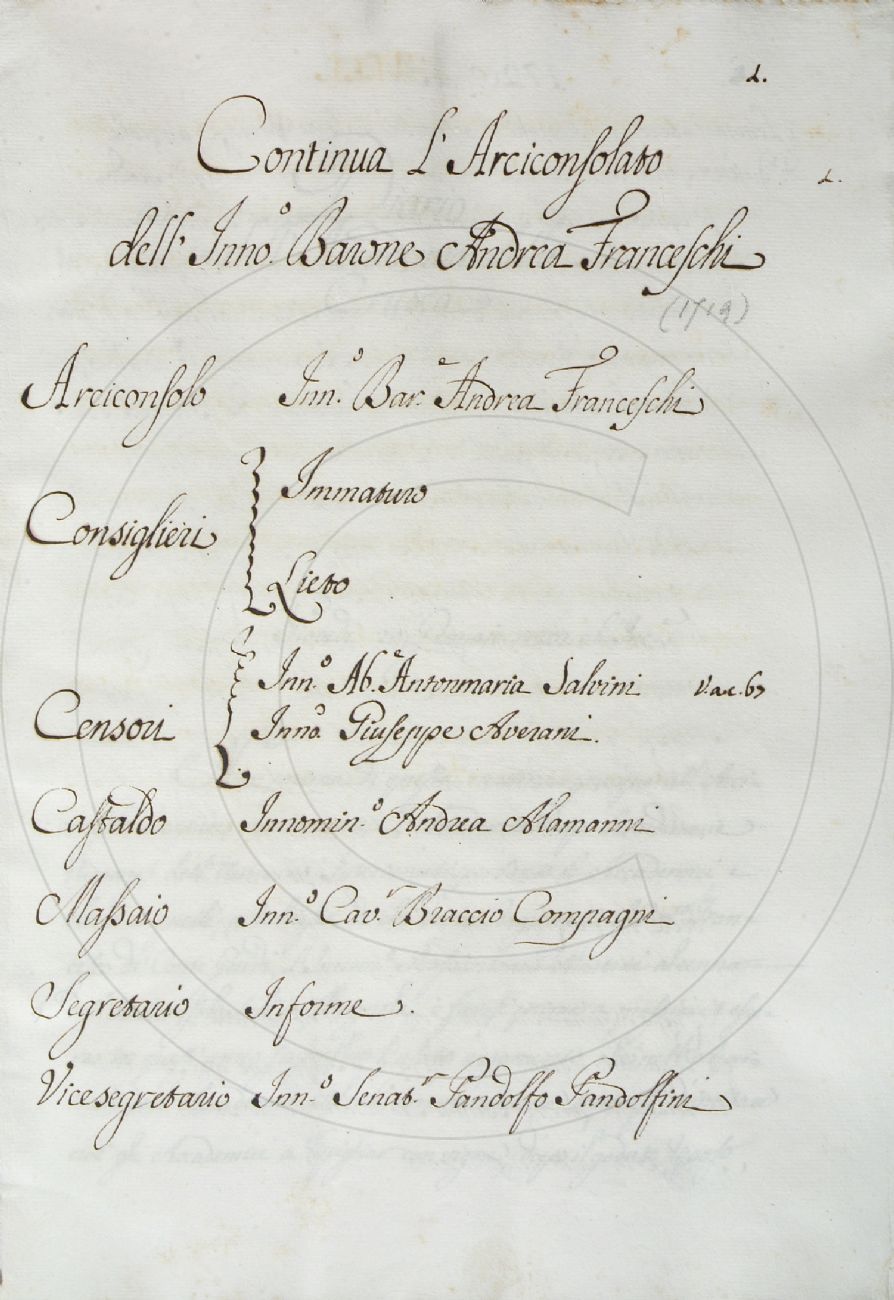 1.
Continua L'Arciconsolato
1.
dell' Inno.º Barone Andrea Franceschi
(1719)
Arciconsolo Inn.º Bar.e Andrea Franceschi
Immaturo
Consiglieri
Lieto
Inn.º Ab.e Antonmaria Salvini V. a c. 67
Censori Inno.º Giuseppe Averani.
Castaldo Innomin.º Andrea Alamanni
Massaio Inn.º Cav.r Braccio Compagni
Segretario Informe.
Vicesegretario Inn.º Senat.r Pandolfo Pandolfini